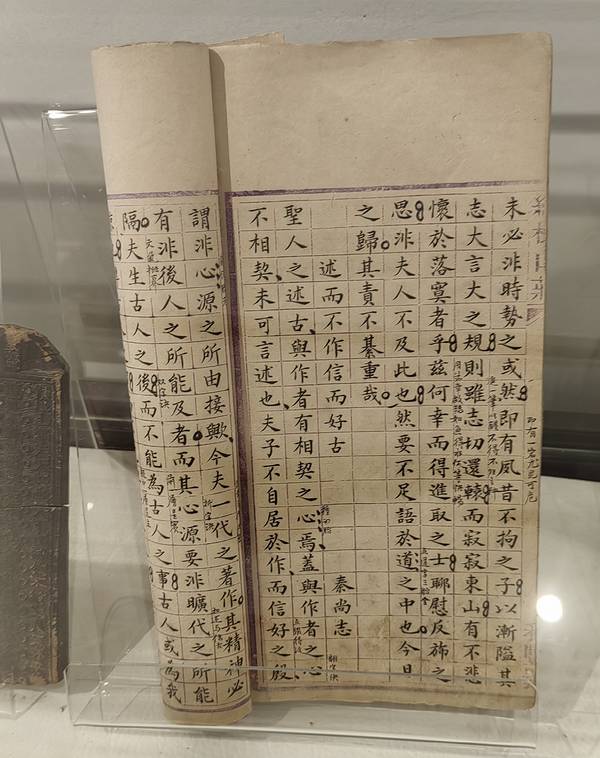 未必非時勢之或然即有夙昔不拘之子以漸隘其
志大言大之規則雖志切還轅而寂寂東山有不悲
懷於落寞者乎茲何幸而得進取之士聊慰反旆之
思非夫人不及此也然要不足語於道之中也今日
之歸其責不綦重哉
述而不作信而好古
秦尚志
聖人之述古與作者有相契之心焉蓋與作者之心
不相契未可言述也夫子不自居於作而信好之殷
謂非心源之所由接歟今夫一代之著作其精神必
有非後人之所能及者而其心源要非曠代之所能
隔夫生古人之後而不能為古人之事古人或為我